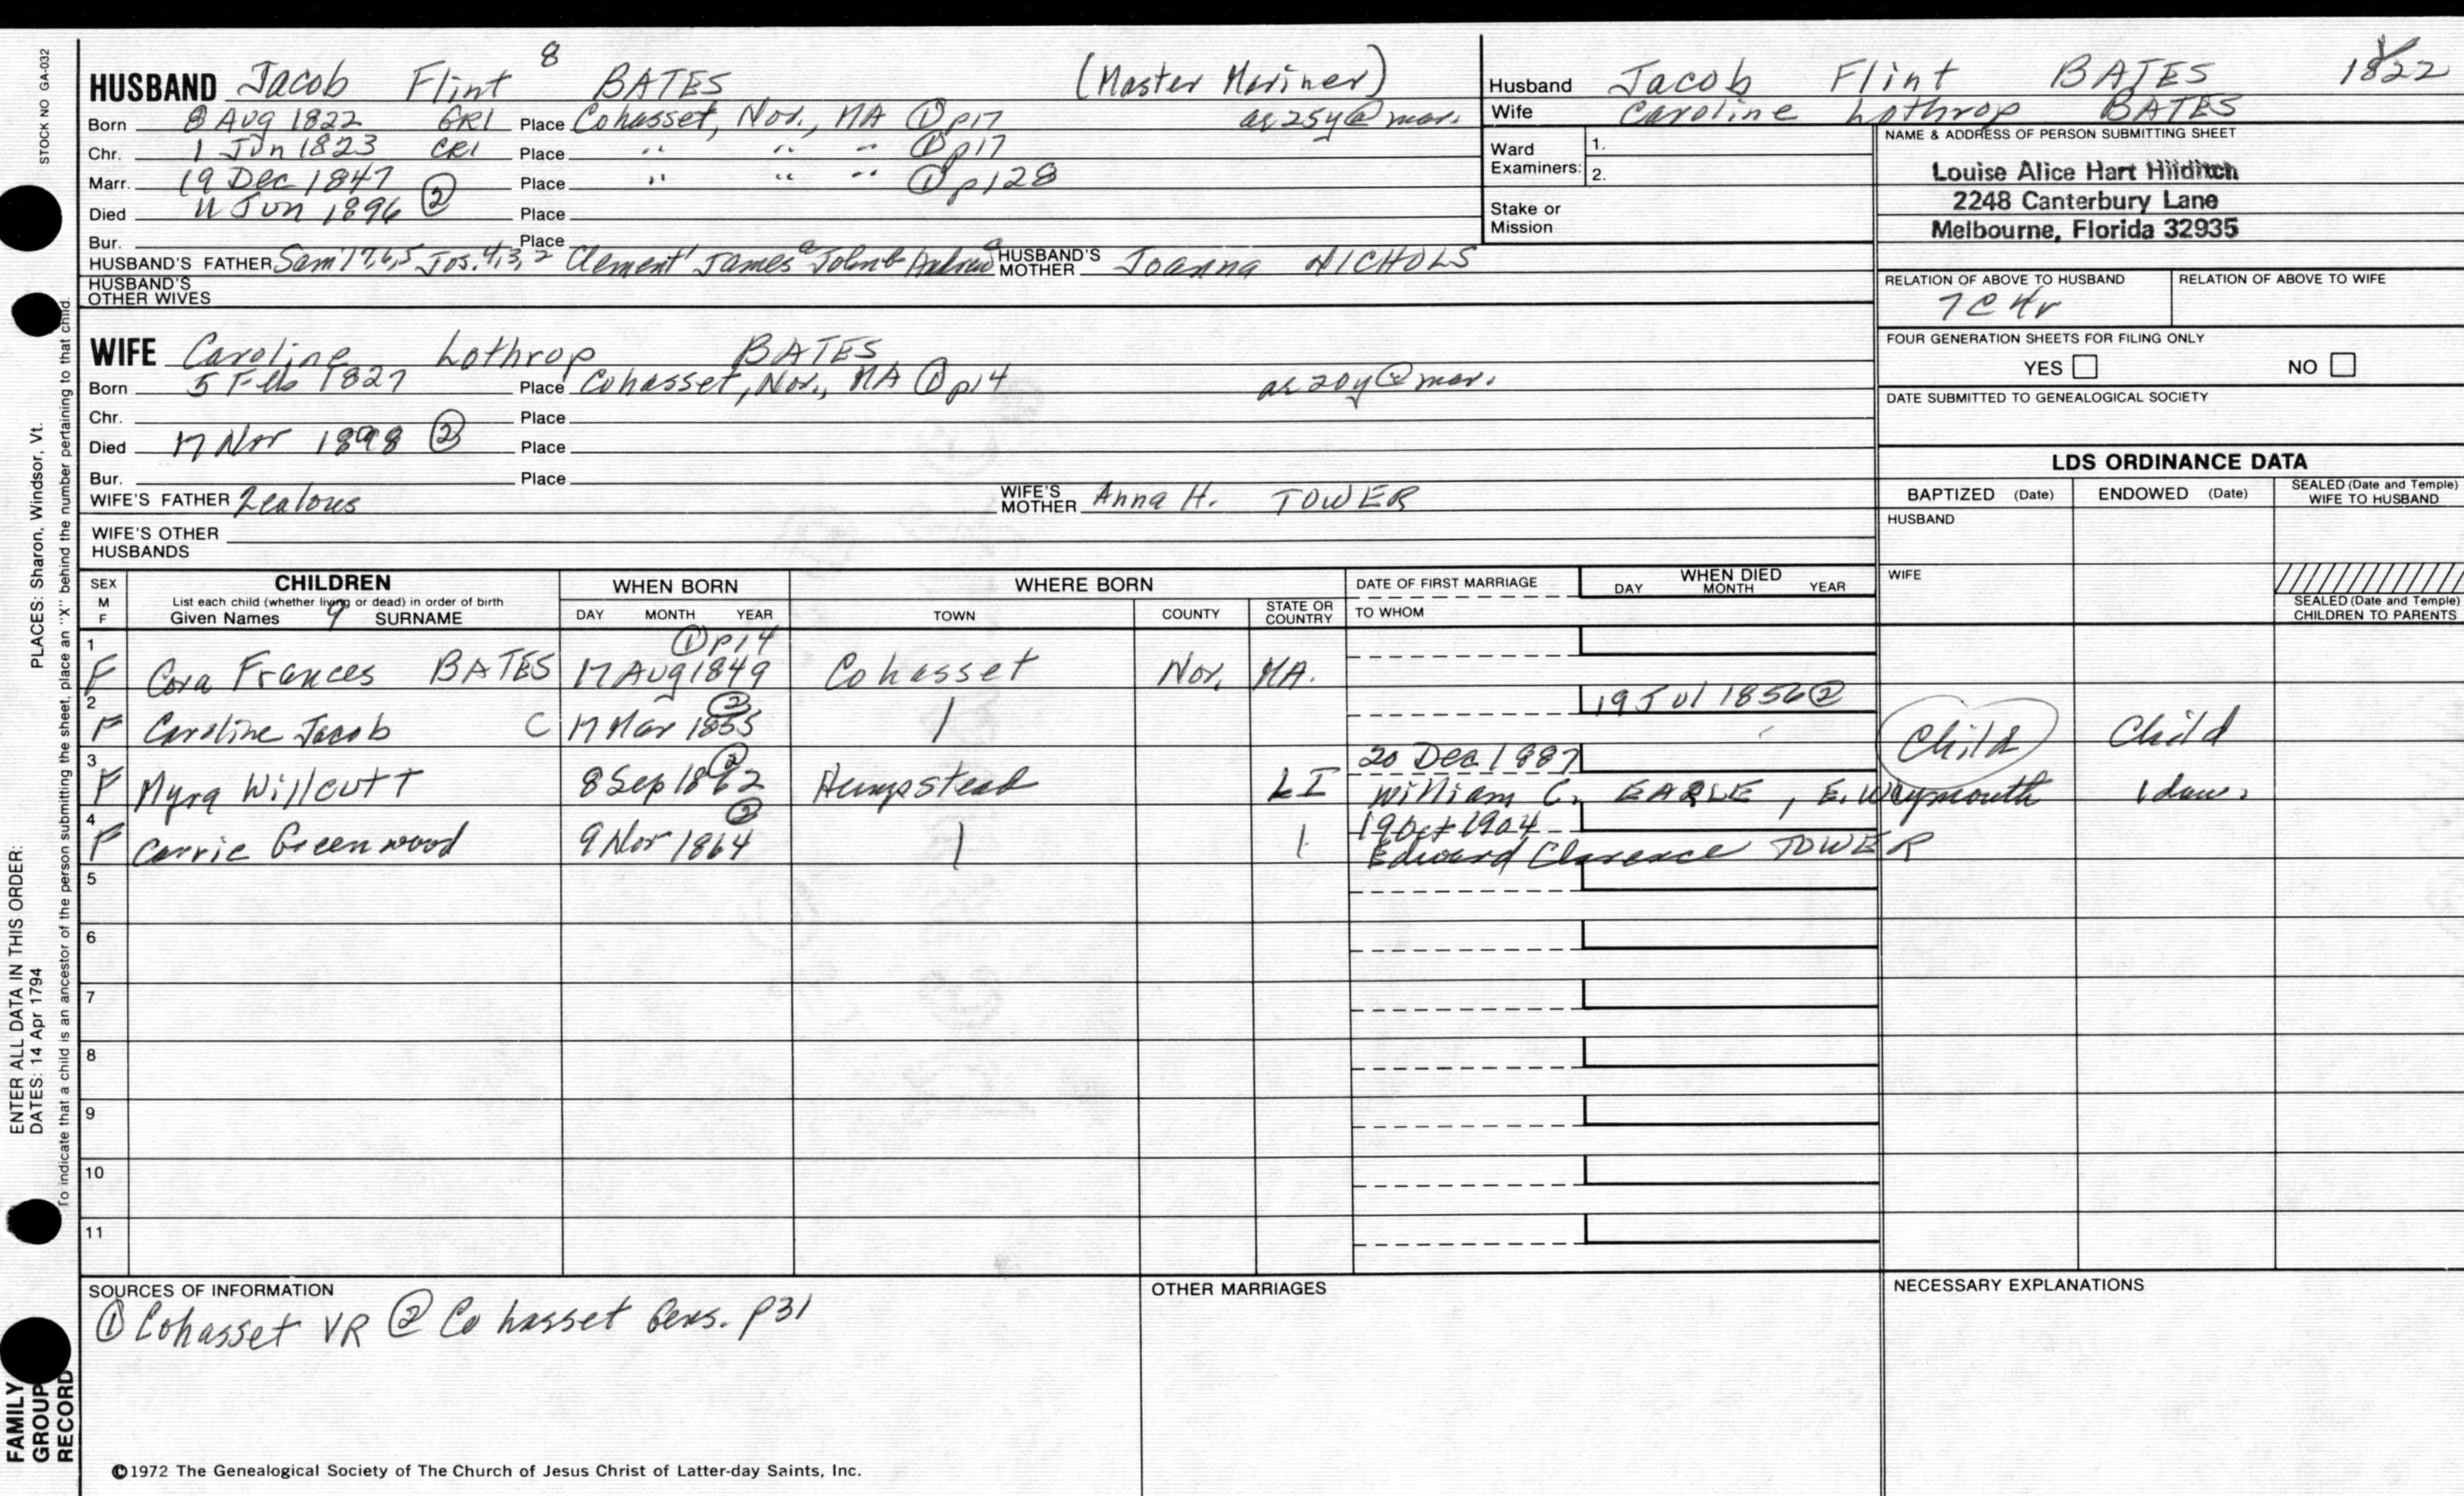 STOCK NO GA-032
HUSBAND Jacob Flint 8 BATES (Master Mariner)
Born 8 Aug 1822 GR1 Place Cohasset, Nor., MA ① p17 as 25y @ mar.
Chr. 1 Jun 1823 CR1 Place " " " ① p17
Marr. 19 Dec 1847 Place " " " ① p128
Died 11 Jun 1896 ② Place
Bur. Place
HUSBAND'S FATHER Sam'l 7,6,5 Jos. 4,3,2 Clement 1 James a John b Andrew c HUSBAND'S MOTHER Joanna NICHOLS
HUSBAND'S OTHER WIVES
WIFE Caroline Lothrop BATES
Born 5 Feb 1827 Place Cohasset, Nor., MA ① p14 as 20y @ mar.
Chr. Place
Died 17 Nov 1898 ② Place
Bur. Place
WIFE'S FATHER Zealous WIFE'S MOTHER Anna H. TOWER
WIFE'S OTHER HUSBANDS
Husband Jacob Flint BATES 1822
Wife Caroline Lothrop BATES
Ward Examiners: 1.
2.
Stake or Mission
NAME & ADDRESS OF PERSON SUBMITTING SHEET
Louise Alice Hart Hilditch
2248 Canterbury Lane
Melbourne, Florida 32935
RELATION OF ABOVE TO HUSBAND RELATION OF ABOVE TO WIFE
7C4r
FOUR GENERATION SHEETS FOR FILING ONLY
YES NO
DATE SUBMITTED TO GENEALOGICAL SOCIETY
LDS ORDINANCE DATA
BAPTIZED (Date) ENDOWED (Date) SEALED (Date and Temple) WIFE TO HUSBAND
HUSBAND
WIFE
SEALED (Date and Temple) CHILDREN TO PARENTS
SEX M F CHILDREN WHEN BORN WHERE BORN DATE OF FIRST MARRIAGE WHEN DIED
List each child (whether living or dead) in order of birth DAY MONTH YEAR
Given Names 9 SURNAME DAY MONTH YEAR TOWN COUNTY STATE OR COUNTRY TO WHOM
1 ① p14
F Cora Frances BATES 17 Aug 1849 Cohasset Nor. MA.
2 ② 19 Jul 1856 ②
F Caroline Jacob C 17 Mar 1855 | Child Child
3 ② 20 Dec 1887
F Myra Willcutt 8 Sep 1862 Hempstead LI William C. EARLE, E. Weymouth 1 dau.
4 ② 19 Oct 1904
F Carrie Greenwood 9 Nov 1864 | | Edward Clarence TOWER
5
6
7
8
9
10
11
SOURCES OF INFORMATION OTHER MARRIAGES NECESSARY EXPLANATIONS
① Cohasset VR ② Cohasset Gens. p31
©1972 The Genealogical Society of The Church of Jesus Christ of Latter-day Saints, Inc.
ENTER ALL DATA IN THIS ORDER:
DATES: 14 Apr 1794 PLACES: Sharon, Windsor, Vt.
To indicate that a child is an ancestor of the person submitting the sheet, place an "X" behind the number pertaining to that child.
FAMILY GROUP RECORD